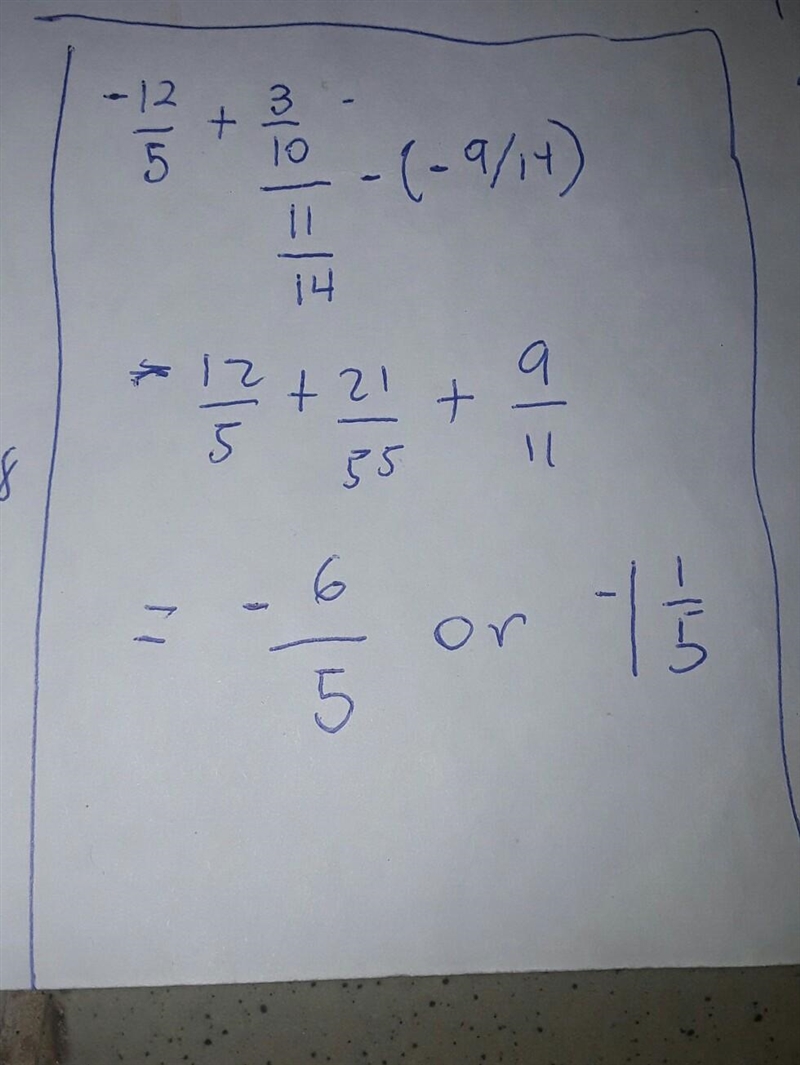 -12/5 + 3/10 / 11/14 - (-9/14)
- 12/5 + 21/55 + 9/11
= - 6/5 or -1 1/5